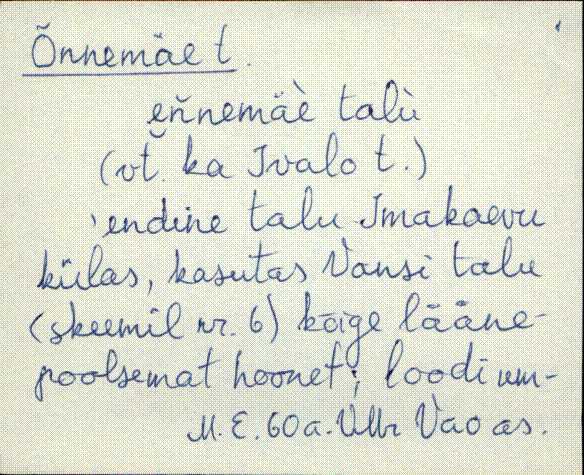 Õnnemäe t.
eňnemäè talù
(vt. ka Ivalo t.)
'endine talu Imakaevu
külas, kasutas Vansi talu
(skeemil nr. 6) kõige lääne-
poolsemat hoonet; loodi um-
M. E. 60 a. Vao as.